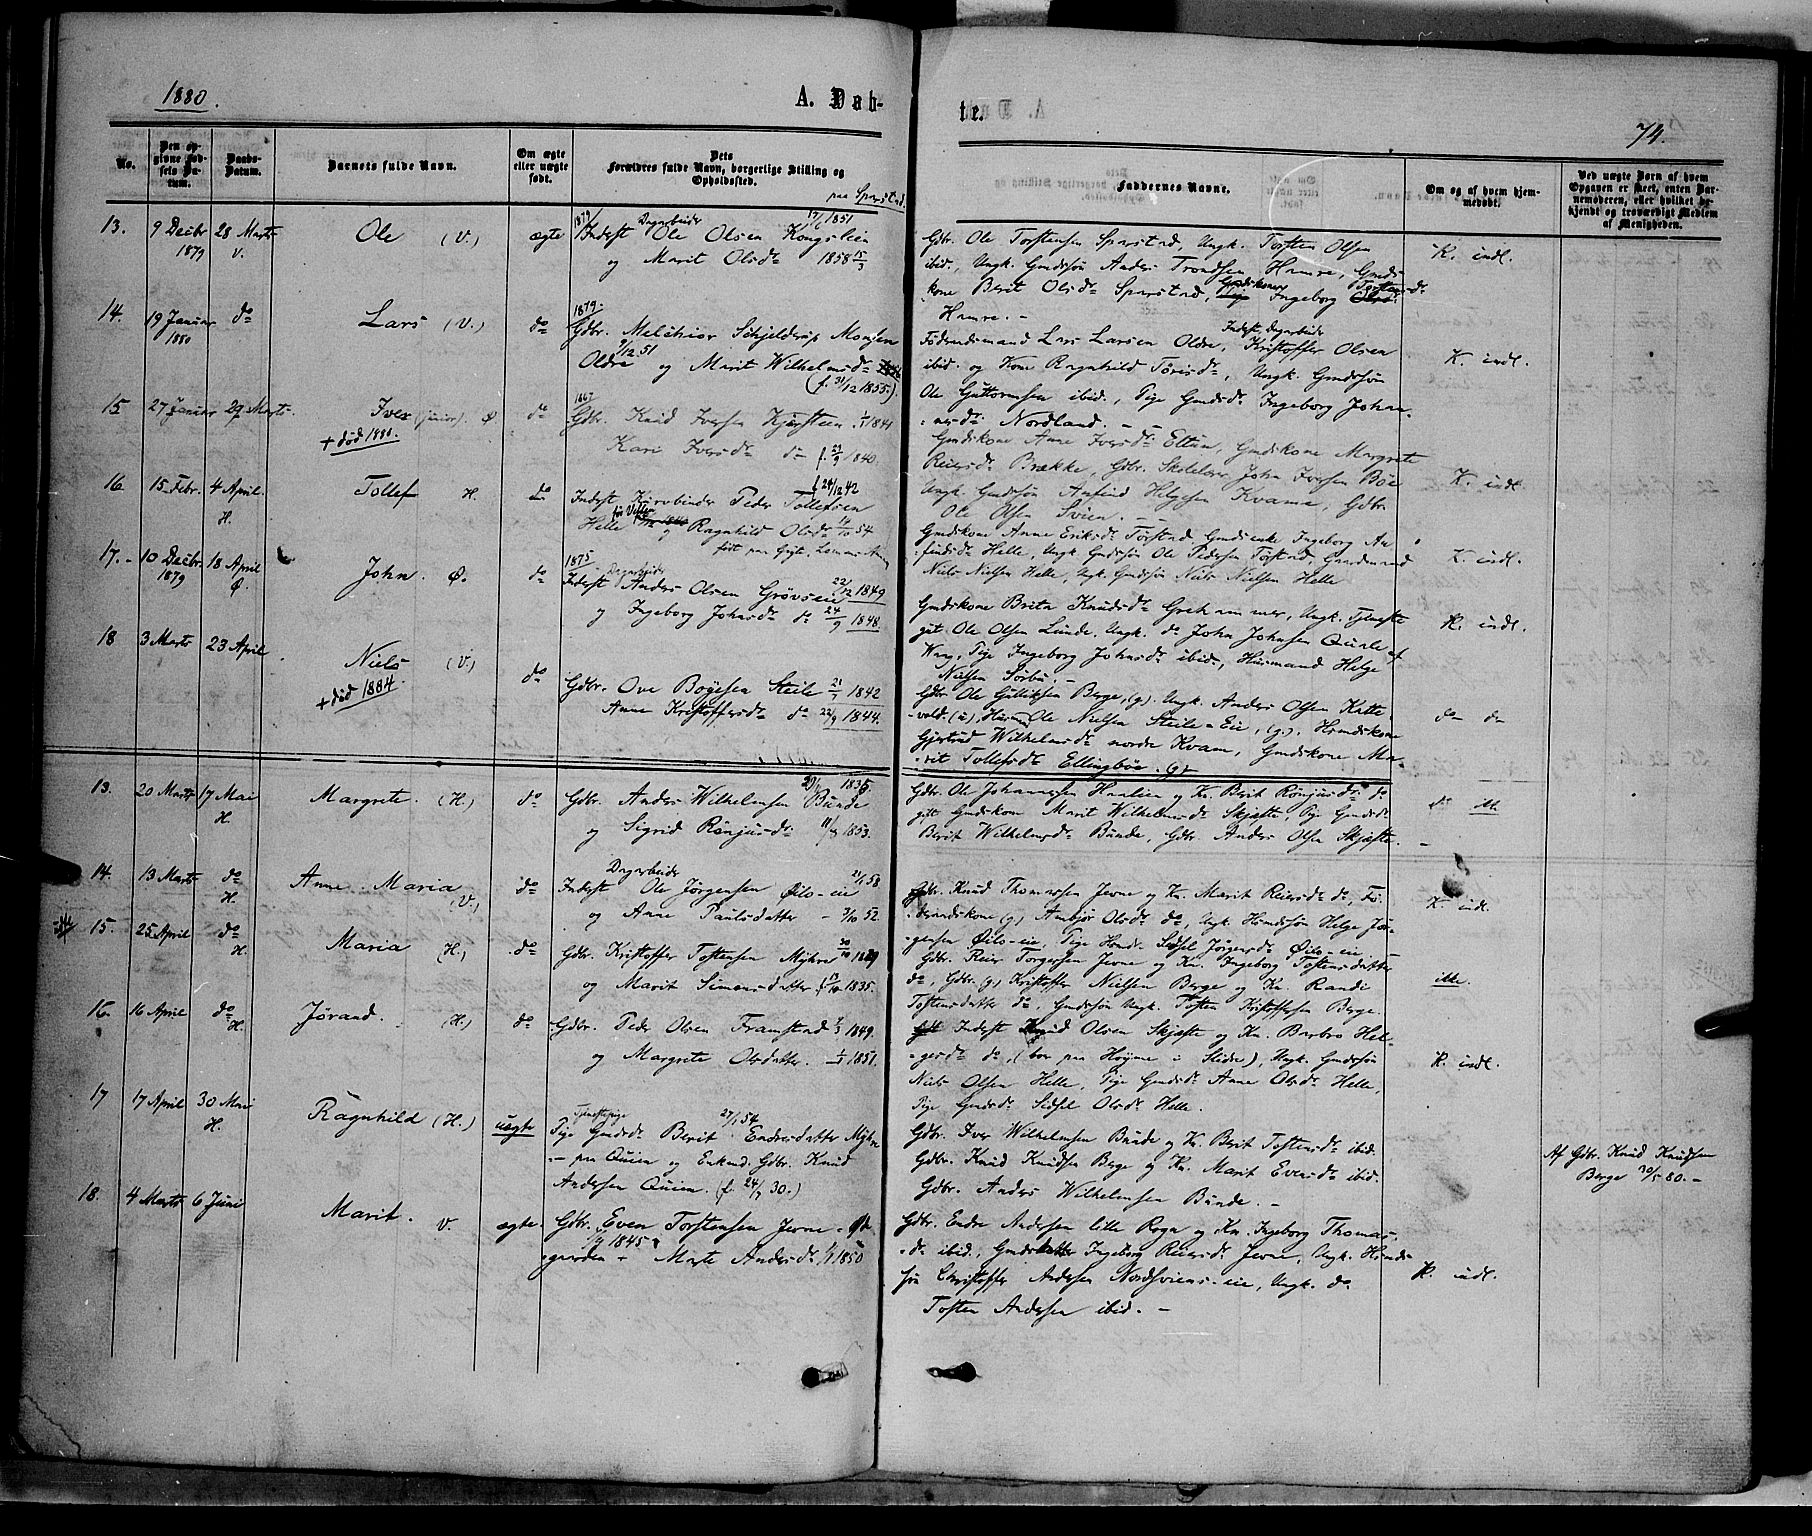 1880.
A. Døb-
te.
74.
No.
Den opgivne Fødsels Datum.
Daabs-Datum.
Barnets fulde Navn.
Om ægte eller uægte født.
Dets Forældres fulde Navn, borgerlige Stilling og Opholdssted.
Faddernes Navne.
Om og af hvem hjemmedøbt.
Ved uægte Børn af hvem Opgaven er skeet, enten Barnemoderen, eller hvilket bekjendt og troværdigt Medlem af Menigheden.
paa Sparstad.
13. 9 Decbr 1879 28 Marts V. Ole (V.) ægte
1879 Dagarbeider 17/6 1851
Inderst Ole Olsen Kongslien
og Marit Olsdr 1858 15/3
Gdbr. Ole Torstensen Sparstad, Ungk. Torsten Olsen
ibid., Ungk. Gmdssøn Anders Trondsen Hamre, Gmds-
kone Berit Olsdr Sparstad, Gmdskone Ingeborg Torstensdr
Hamre. -
K. indl.
14. 19 Januar 1880 do Lars (V.) do
1879.
Gdbr. Melchior Schjelderup Monsen
Oldre 9/12 51 og Marit Wilhelmsdr
(f. 31/12 1855.)
Føderaadsmand Lars Larsen Oldre, Inderst, Dagarbeider Kristoffer Olsen
ibid. og Kone Ragnhild Tørisdr, Ungk. Gmdssøn
Ole Guttormsen ibid., Pige Gmdsd. Ingeborg Johan-
nesdr Nordland. -
K. indl.
15 27 Januar 29 Marts Iver (junior). Ø. do
+ død 1880.
1867
Gdbr. Knud Iversen Kjørsteen 1/1 1841
Kari Iversdr do f. 27/9 1840.
Gmdskone Anne Iversdr Eltun, Gmdskone Margrete
Reiersdr Brække, Gdbr. Skolelærer John Iversen Bøe
Ungk. Gmdssøn Anfind Helgesen Kvame, Gdbr.
Ole Olsen Svien. -
K. indl.
16. 15 Febr. 4 April. H. Tollef H. do
f 24/12 42
Inderst Kurvbinder Peder Tollefsen
Helle og Ragnhild Olsdr 11/10 54
Gmdskone Anne Eriksdr Tørstad, Gmdsenke Ingeborg An-
findsdr Helle, Ungk. Gmdssøn Ole Pedersen Tørstad, Gaardmand
Niels Nielsen Helle, Ungk. Gmdssøn Niels Nielsen Helle
K. indl.
17. - 10 Decbr. 1879 18 April Ø. John. Ø. do
1875 - Dagarbeider
Inderst Anders Olsen Grøvseie 22/12 1849
og Ingeborg Johnsdr do 24/9 1848.
Gmdskone Brita Knudsdr Grethammer, Ungk. Tjeneste-
gut Ole Olsen Lunde, Ungk. do John Johnsen Qvale af
Vang, Pige Ingeborg Johnsdr ibid., Husmand Helge
Nielsen Sørbu. -
K. indl.
18 3 Marts 23 April Niels (V.) do
+ død 1884.
Gdbr. Ove Boyesen Steile 21/1 1842
Anne Kristoffersdr do 22/9 1844.
Gdbr Ole Gulliksen Berge, (g). Ungk. Anders Olsen Katte-
vold. (u) Husmd Ole Nielsen Steile-Eie, (g). Hsmdskone
Gjertrud Wilhelmsdr nordre Kvam, Gmdskone Ma-
rit Tollefsdr Ellingbøe. (g)
do do
13. 20 Marts 17 Mai H. Margrete. (H.) do
Gdbr. Anders Wilhelmsen Bunde
og Sigrid Rønjusdr 11/8 1853.
Gdbr. Ole Johannesen Haalien og Kn. Berit Rønjusdr do
gift Gmdskone Marit Wilhelmsdr Skjefte, Pige Gmdsdr
Berit Wilhelmsdr Bunde, Gdbr. Anders Olsen Skjefte. -
do M.
14. 13 Marts do H. Anne Maria (V.) do
Dagarbeider
Inderst Ole Jørgensen Øilo-eie 21/1 58.
og Anne Paulsdatter - 3/10 52.
Gdbr. Knud Thomassen Jevne og Kn. Marit Reiersdr do, Fø-
deraadskone (g) Ambjør Olsdr do, Ungk Hsmdssøn Helge Jør-
gensen Øilo-eie, Pige Hsmds. Sidsel Jørgensdr Øilo-eie.
K. indl.
15. 25 April do H. Maria (H.) do
Gdbr. Kristoffer Tostensen Myhre
og Marit Simensdatter 1835.
Gdbr. Reier Torgersen Jevne og Kn. Ingeborg Tostensdatter
do, Gdbr. (g) Kristoffer Nielsen Berge og Kn. Randi
Tostensdatter do, Gmdssøn Ungk. Tosten Kristoffersen Berge.
ikke.
16. 16 April do H. Jørand. (H.) do
Gdbr. Peder Olsen Framstad 1849.
og Margrete Olsdatter. 1851.
Inderst Knud Olsen Skjefte og Kn. Barbro Hel-
gesdr do, (bor paa Høyme i Slidre), Ungk. Gmdssøn
Niels Olsen Helle, Pige Gmdsdr Anne Olsdr Helle,
Pige Gmdsdr Sidsel Olsdr Helle.
K. indl.
17 17 April 30 Mai H. Ragnhild (H.) uægte
Tjenestepige 27/1 54
Pige Gmdsdr Berit Endresdatter Myhre
- paa Quien og Enkmd. Gdbr. Knud
Andersen Quien. (f. 24/7 30.)
Gdbr. Iver Wilhelmsen Bunde og Kn. Berit Tostensdr ibid.
Gdbr. Knud Knudsen Berge og Kn. Marit Evensdr ibid.
Gdbr. Anders Wilhelmsen Bunde. -
Af Gdbr. Knud Knudsen
Berge 30/5 80. -
18. 4 Marts 6 Juni Marit. V. ægte.
Gdbr. Even Torstensen Jevne - Øde-
gaarden - Marte Andersdr 1/1 1850
1/9 1845
Gdbr. Endre Andersen lille Rogn og Kn. Ingeborg Thomas-
dr ibid., Gmdsdatter Ingeborg Reiersdr Jevne, Ungk. Hsmds-
søn Christoffer Andersen Nordsviens-eie, Ungk. do
Tosten Andersen ibid. -
K. indl.